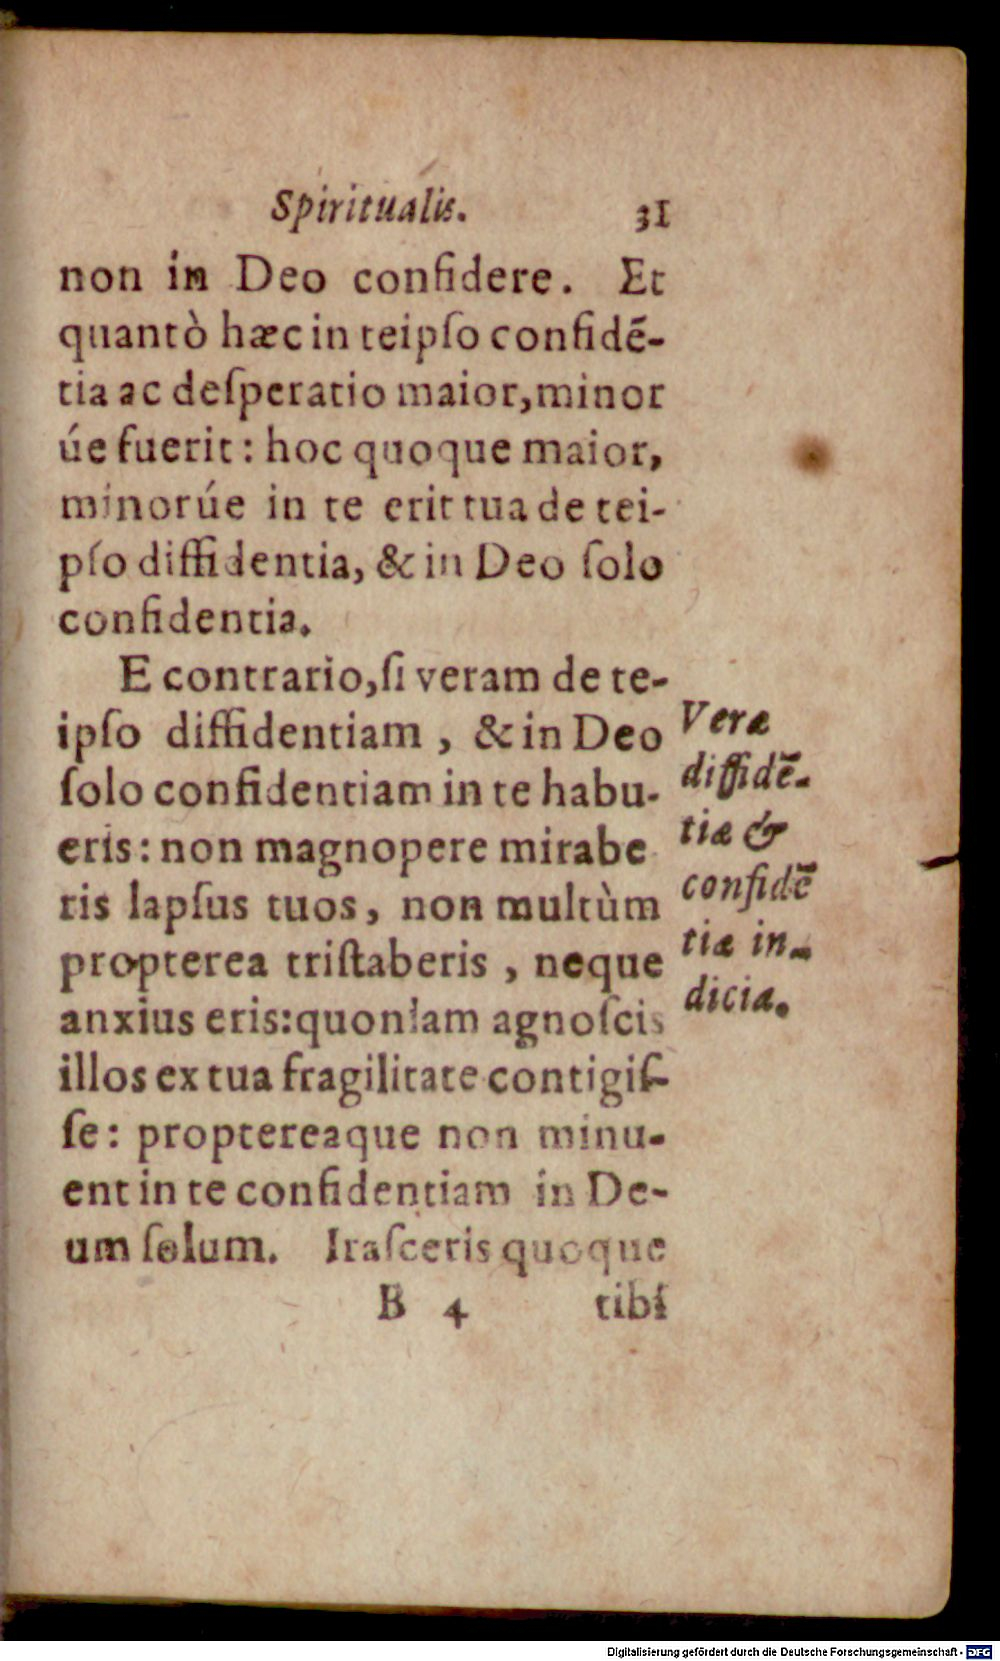 Spiritualis. 31
non in Deo confidere. Et
quantò hæc in teipſo confidē-
tia ac deſperatio maior, minor
úe fuerit: hoc quoque maior,
minorúe in te erit tua de tei-
pſo diffidentia, & in Deo ſolo
confidentia.
E contrario, ſi veram de te-
ipſo diffidentiam, & in Deo
ſolo confidentiam in te habu-
eris: non magnopere mirabe
ris lapſus tuos, non multùm
propterea triſtaberis, neque
anxius eris: quoniam agnoſcis
illos ex tua fragilitate contigiſ-
ſe: proptereaque non minu-
ent in te confidentiam in De-
um ſolum. Iraſceris quoque
B 4 tibi
Veræ
diffidē-
tiæ &
confidē
tiæ in-
dicia.
Digitalisierung gefördert durch die Deutsche Forschungsgemeinschaft - DFG